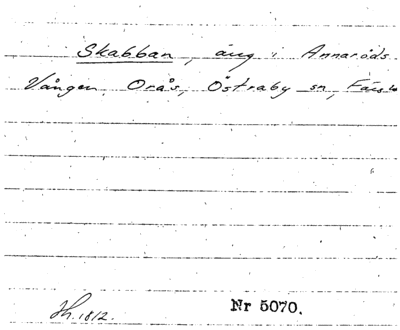 Skabban, äng i Annaröds
Vången, Orås, Östraby sn, Färs
1812.
Nr 5070.